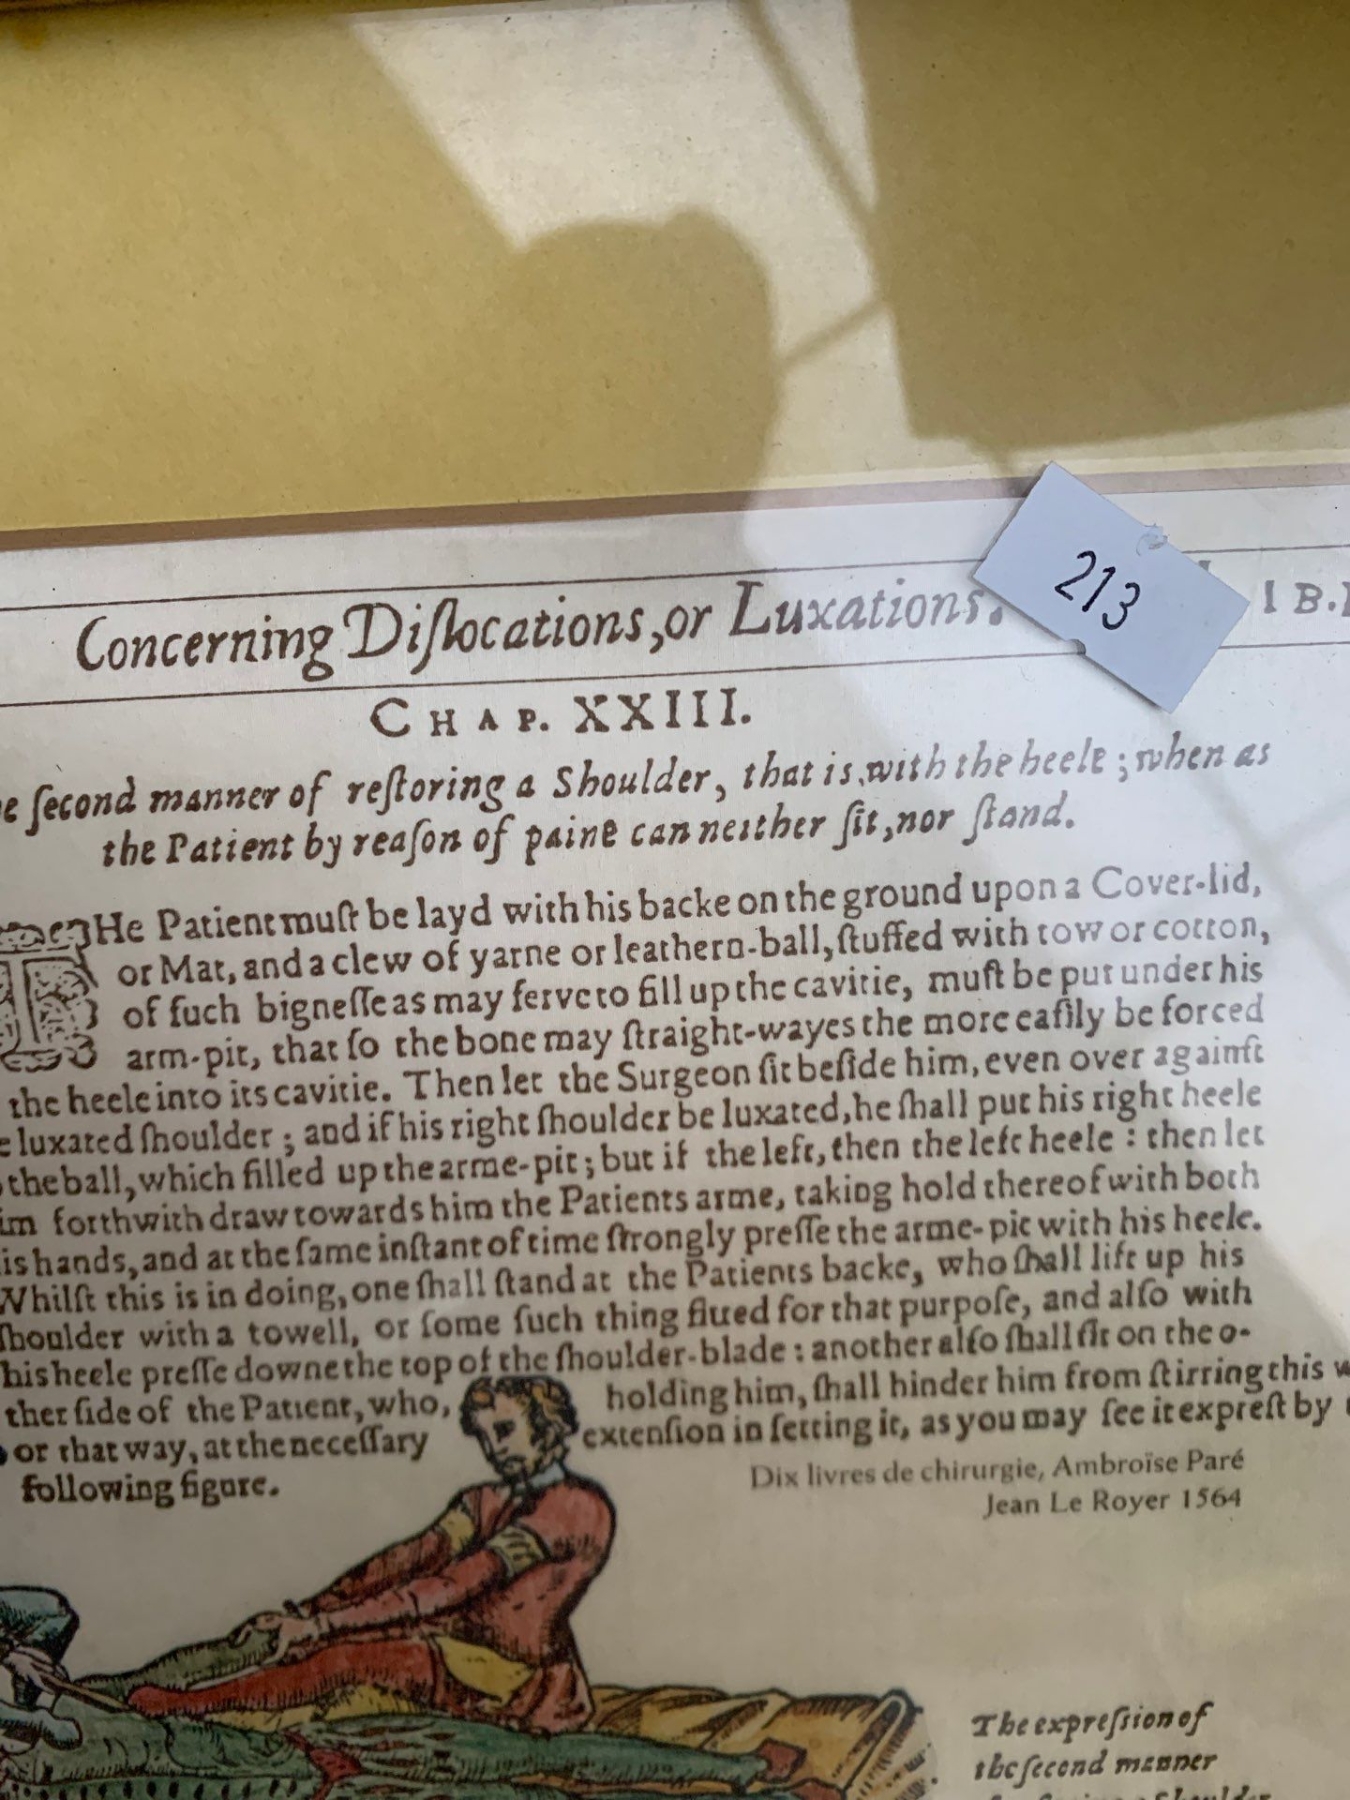 213
Concerning Diſlocations,or Luxations.
I B.
CHAP. XXIII.
ſecond manner of reſtoring a Shoulder, that is,with the heele ; when as
the Patient by reaſon of paine can neither ſit,nor ſtand.
THe Patient muſt be layd with his backe on the ground upon a Cover-lid,
or Mat, and a clew of yarne or leathern-ball, ſtuffed with tow or cotton,
of ſuch bigneſſe as may ſerve to fill up the cavitie, muſt be put under his
arm-pit, that ſo the bone may ſtraight-wayes the more eaſily be forced
the heele into its cavitie. Then let the Surgeon ſit beſide him, even over againſt
luxated ſhoulder ; and if his right ſhoulder be luxated,he ſhall put his right heele
the ball, which filled up the arme-pit ; but if the left, then the left heele : then let
forthwith draw towards him the Patients arme, taking hold thereof with both
hands, and at the ſame inſtant of time ſtrongly preſſe the arme-pit with his heele.
Whilſt this is in doing, one ſhall ſtand at the Patients backe, who ſhall lift up his
ſhoulder with a towell, or ſome ſuch thing fitted for that purpoſe, and alſo with
his heele preſſe downe the top of the ſhoulder-blade : another alſo ſhall ſit on the o-
ther ſide of the Patient, who, holding him, ſhall hinder him from ſtirring this
or that way, at the neceſſary extenſion in ſetting it, as you may ſee it expreſt by
following figure.
Dix livres de chirurgie, Ambroïse Paré
Jean Le Royer 1564
The expreſsion of
the ſecond manner
Shoulder